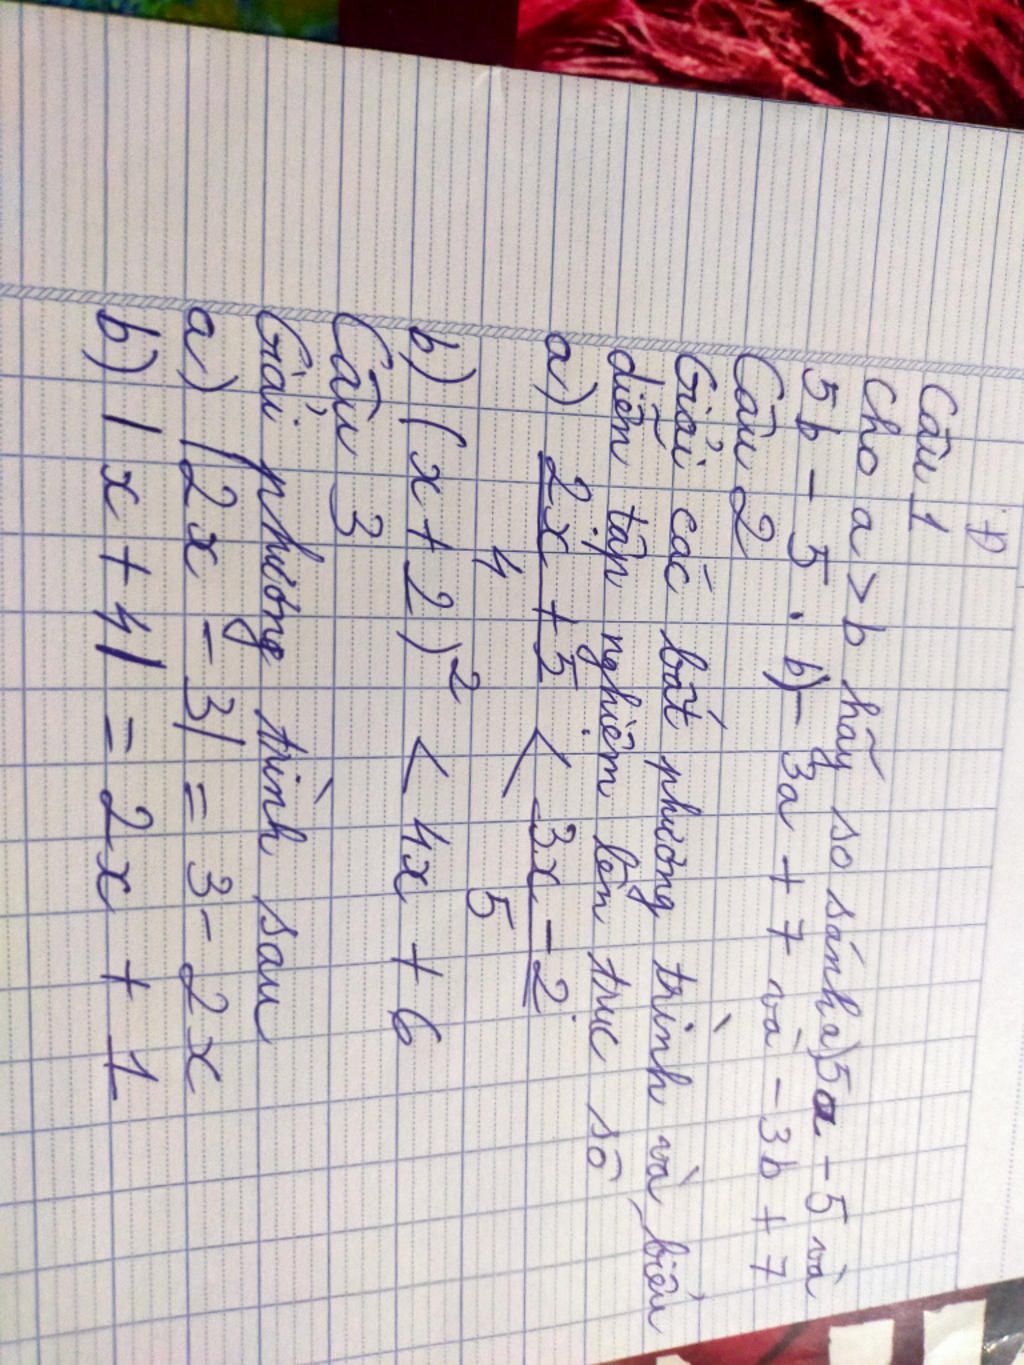 Đ
Câu 1
Cho a > b hãy so sánh a) 5a - 5 và
5b - 5 . b) - 3a + 7 và - 3b + 7
Câu 2
Giải các bất phương trình và biểu
diễn tập nghiệm lên trục số
a) (2x + 5)/4 < (3x - 2)/5
b) (x + 2)² < 4x + 6
Câu 3
Giải phương trình sau
a) |2x - 3| = 3 - 2x
b) |x + 4| = 2x + 1